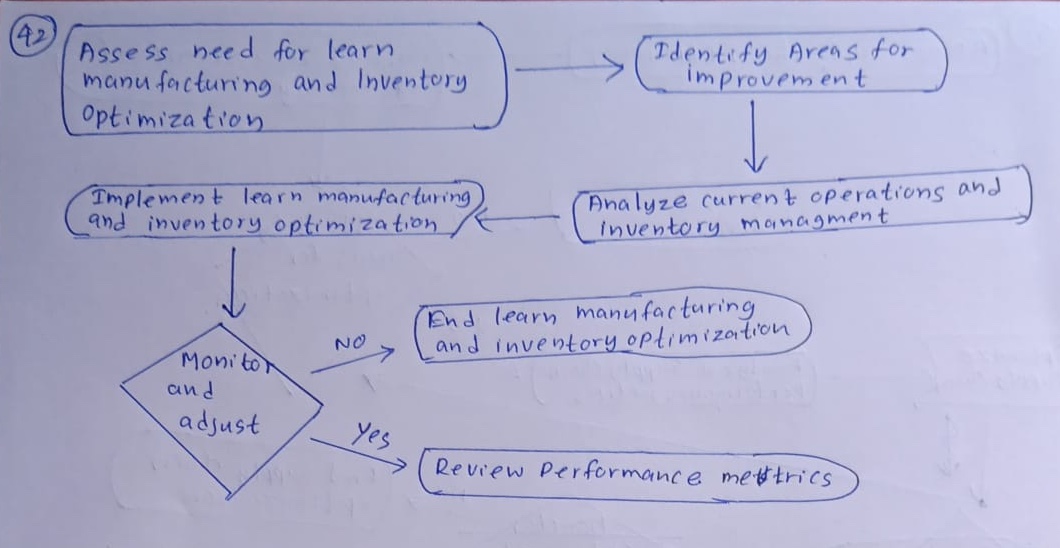 42
Assess need for learn
manufacturing and Inventory
Optimization
Identify Areas for
improvement
Analyze current operations and
inventory managment
Implement learn manufacturing
and inventory optimization
Monitor
and
adjust
NO
End learn manufacturing
and inventory optimization
Yes
Review Performance metrics